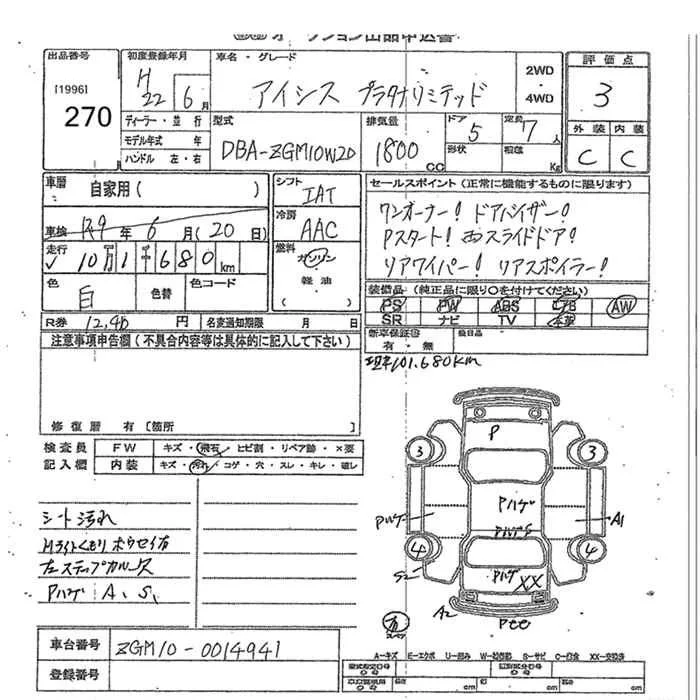 出品番号
[1996]
270
初度登録年月
H 22年 6月
車名・グレード
アイシス プラタナリミテッド
2WD
・
4WD
評価点
3
ディーラー・並行
モデル年式 年
ハンドル 左・右
型式
DBA-ZGM10W20
排気量
1800 CC
ドア 5
形状
定員 7人
積載 Kg
外装 内装
C C
車歴 自家用( )
車検 R9年 6月(20日)
走行 ✓ 10万1千680km
色 白
色替
色コード
シフト
IAT
冷房
AAC
燃料
ガソリン
・
軽油
( )
セールスポイント(正常に機能するものに限ります)
ワンオーナー! ドアバイザー!
Pスタート! 両スライドドア!
リアワイパー! リアスポイラー!
装備品(純正品に限り○を付けてください)
PS PW ABS AW
SR ナビ TV 本革
R券 円 名変通知期限 月 日
新車保証書
有・無
後日品
注意事項申告欄(不具合内容等は具体的に記入して下さい)
101.680km
修復歴 有[箇所 ]
検査員
記入欄
FW キズ・飛石・ヒビ割・リペア跡・×要
内装 キズ・汚れ・コゲ・穴・スレ・キレ・破レ
シート汚れ
Hライトくもり
左ステップカバー欠
Pハゲ A、S、
P
3 3
Pハゲ
Pハゲ A1
4 4
S2
Pハゲ XX
A2
車台番号 ZGM10-0014941
登録番号
A-キズ E-エクボ U-凹み W-波修跡 S-サビ C-腐食 XX-交換跡